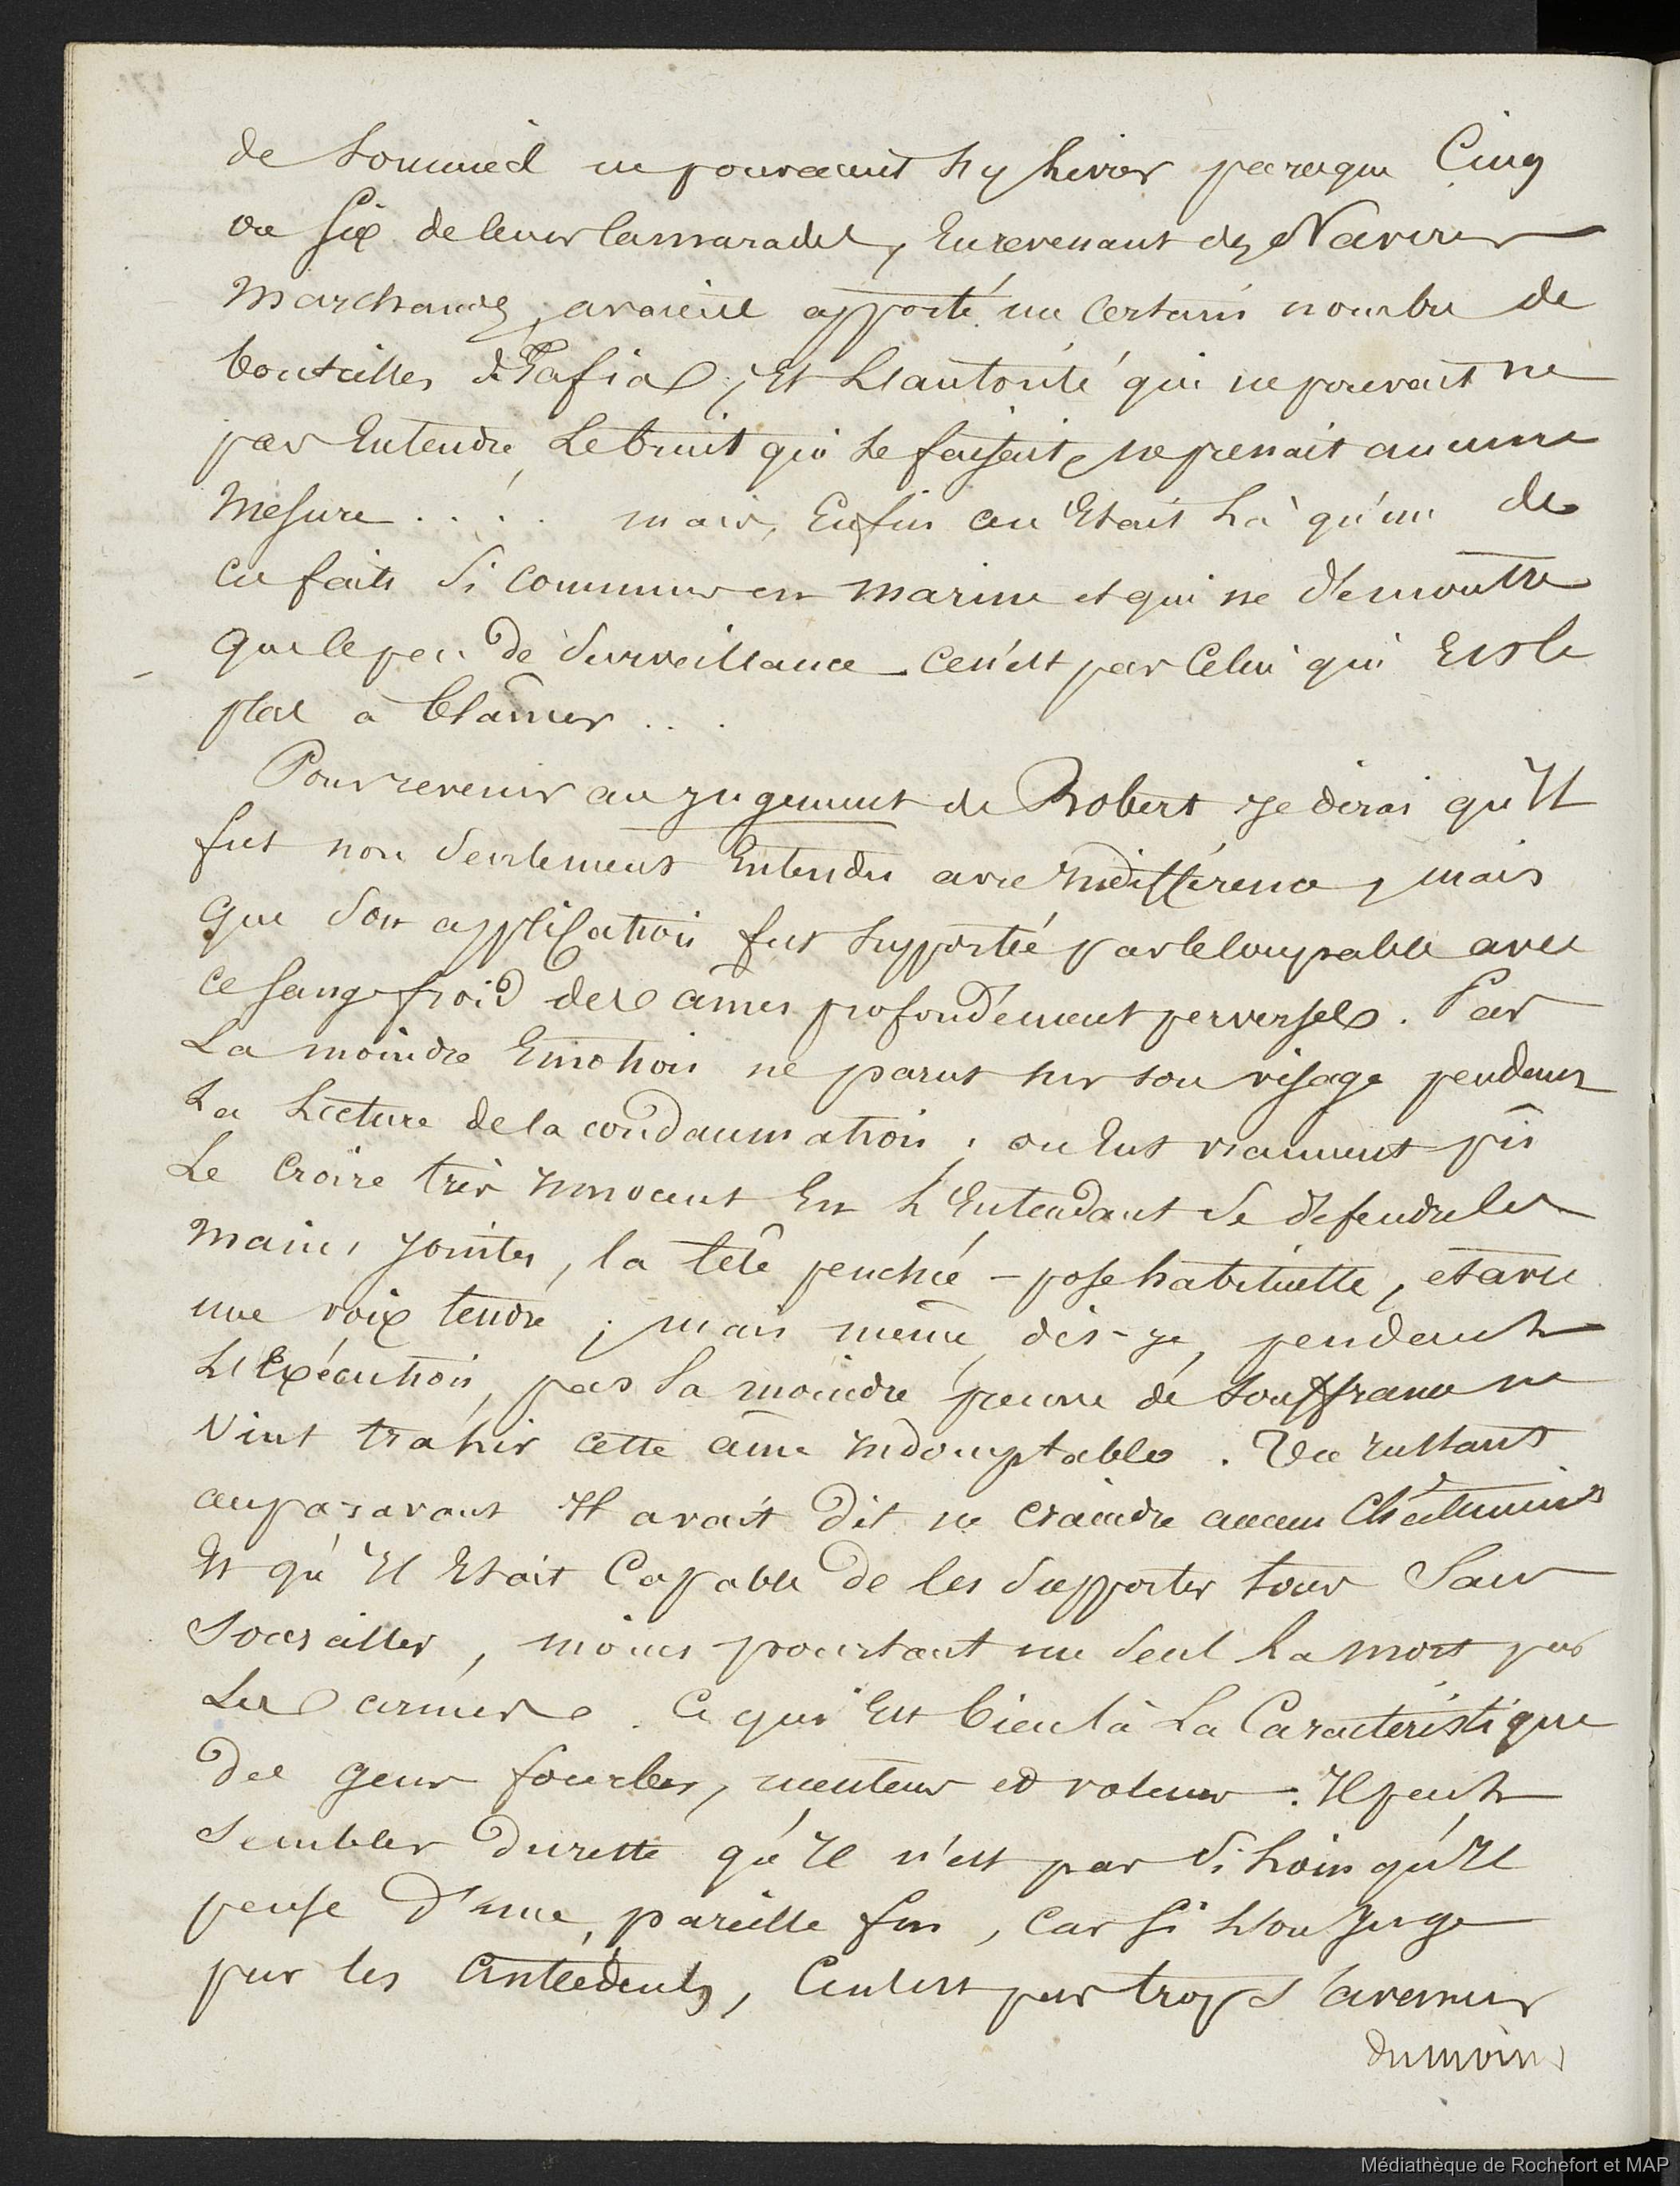 de Sommeil ne pouvaient s'y livrer parceque Cinq
ou six de leurs Camarades, En revenant des Navires
Marchands, avaient apporté un Certain nombre de
bouteilles de Tafia ; Et L'autorité qui ne pouvait ne
pas Entendre Le bruit qui Se faisait, ne prenait aucune
Mesure . . . . mais, Enfin ce n'Etait Là qu'un de
ces faits Si communs en marine et qui ne démontre
que le peu de Surveillance ce n'est pas Celui qui Est le
plus à blâmer . . .
Pour revenir au jugement de Robert je dirai qu'Il
fut non Seulement Entendu avec Indifférence, mais
que Son application fut Supportée par le Coupable avec
ce sang-froid des âmes profondément perverses. Pas
La moindre Emotion ne parut sur son visage pendant
La Lecture de la condamnation ; on Eut vraiment pû
Le Croire très Innocent En L'Entendant Se défendre les
mains Jointes, la tête penchée - pose habituelle, et avec
une voix tendre ; mais même, dis-je, pendant
L'Exécution, pas la moindre preuve de Souffrance ne
Vint trahir cette âme Indomptable. Un Instant
auparavant Il avait Dit ne craindre aucun Châtiment
Et qu'Il Etait Capable de les Supporter tous Sans
Sourciller, moins pourtant un Seul La mort par
Les armes. Ce qui Est bien là La Caractéristique
des gens fourbes, menteurs et voleurs. Il peut
Sembler Dureste qu'Il n'est pas Si Loin qu'Il
pense D'une pareille fin, Car Si L'on Juge
par les Antécédents, Ce n'est pas trop S'avancer
du moins
Médiathèque de Rochefort et MAP